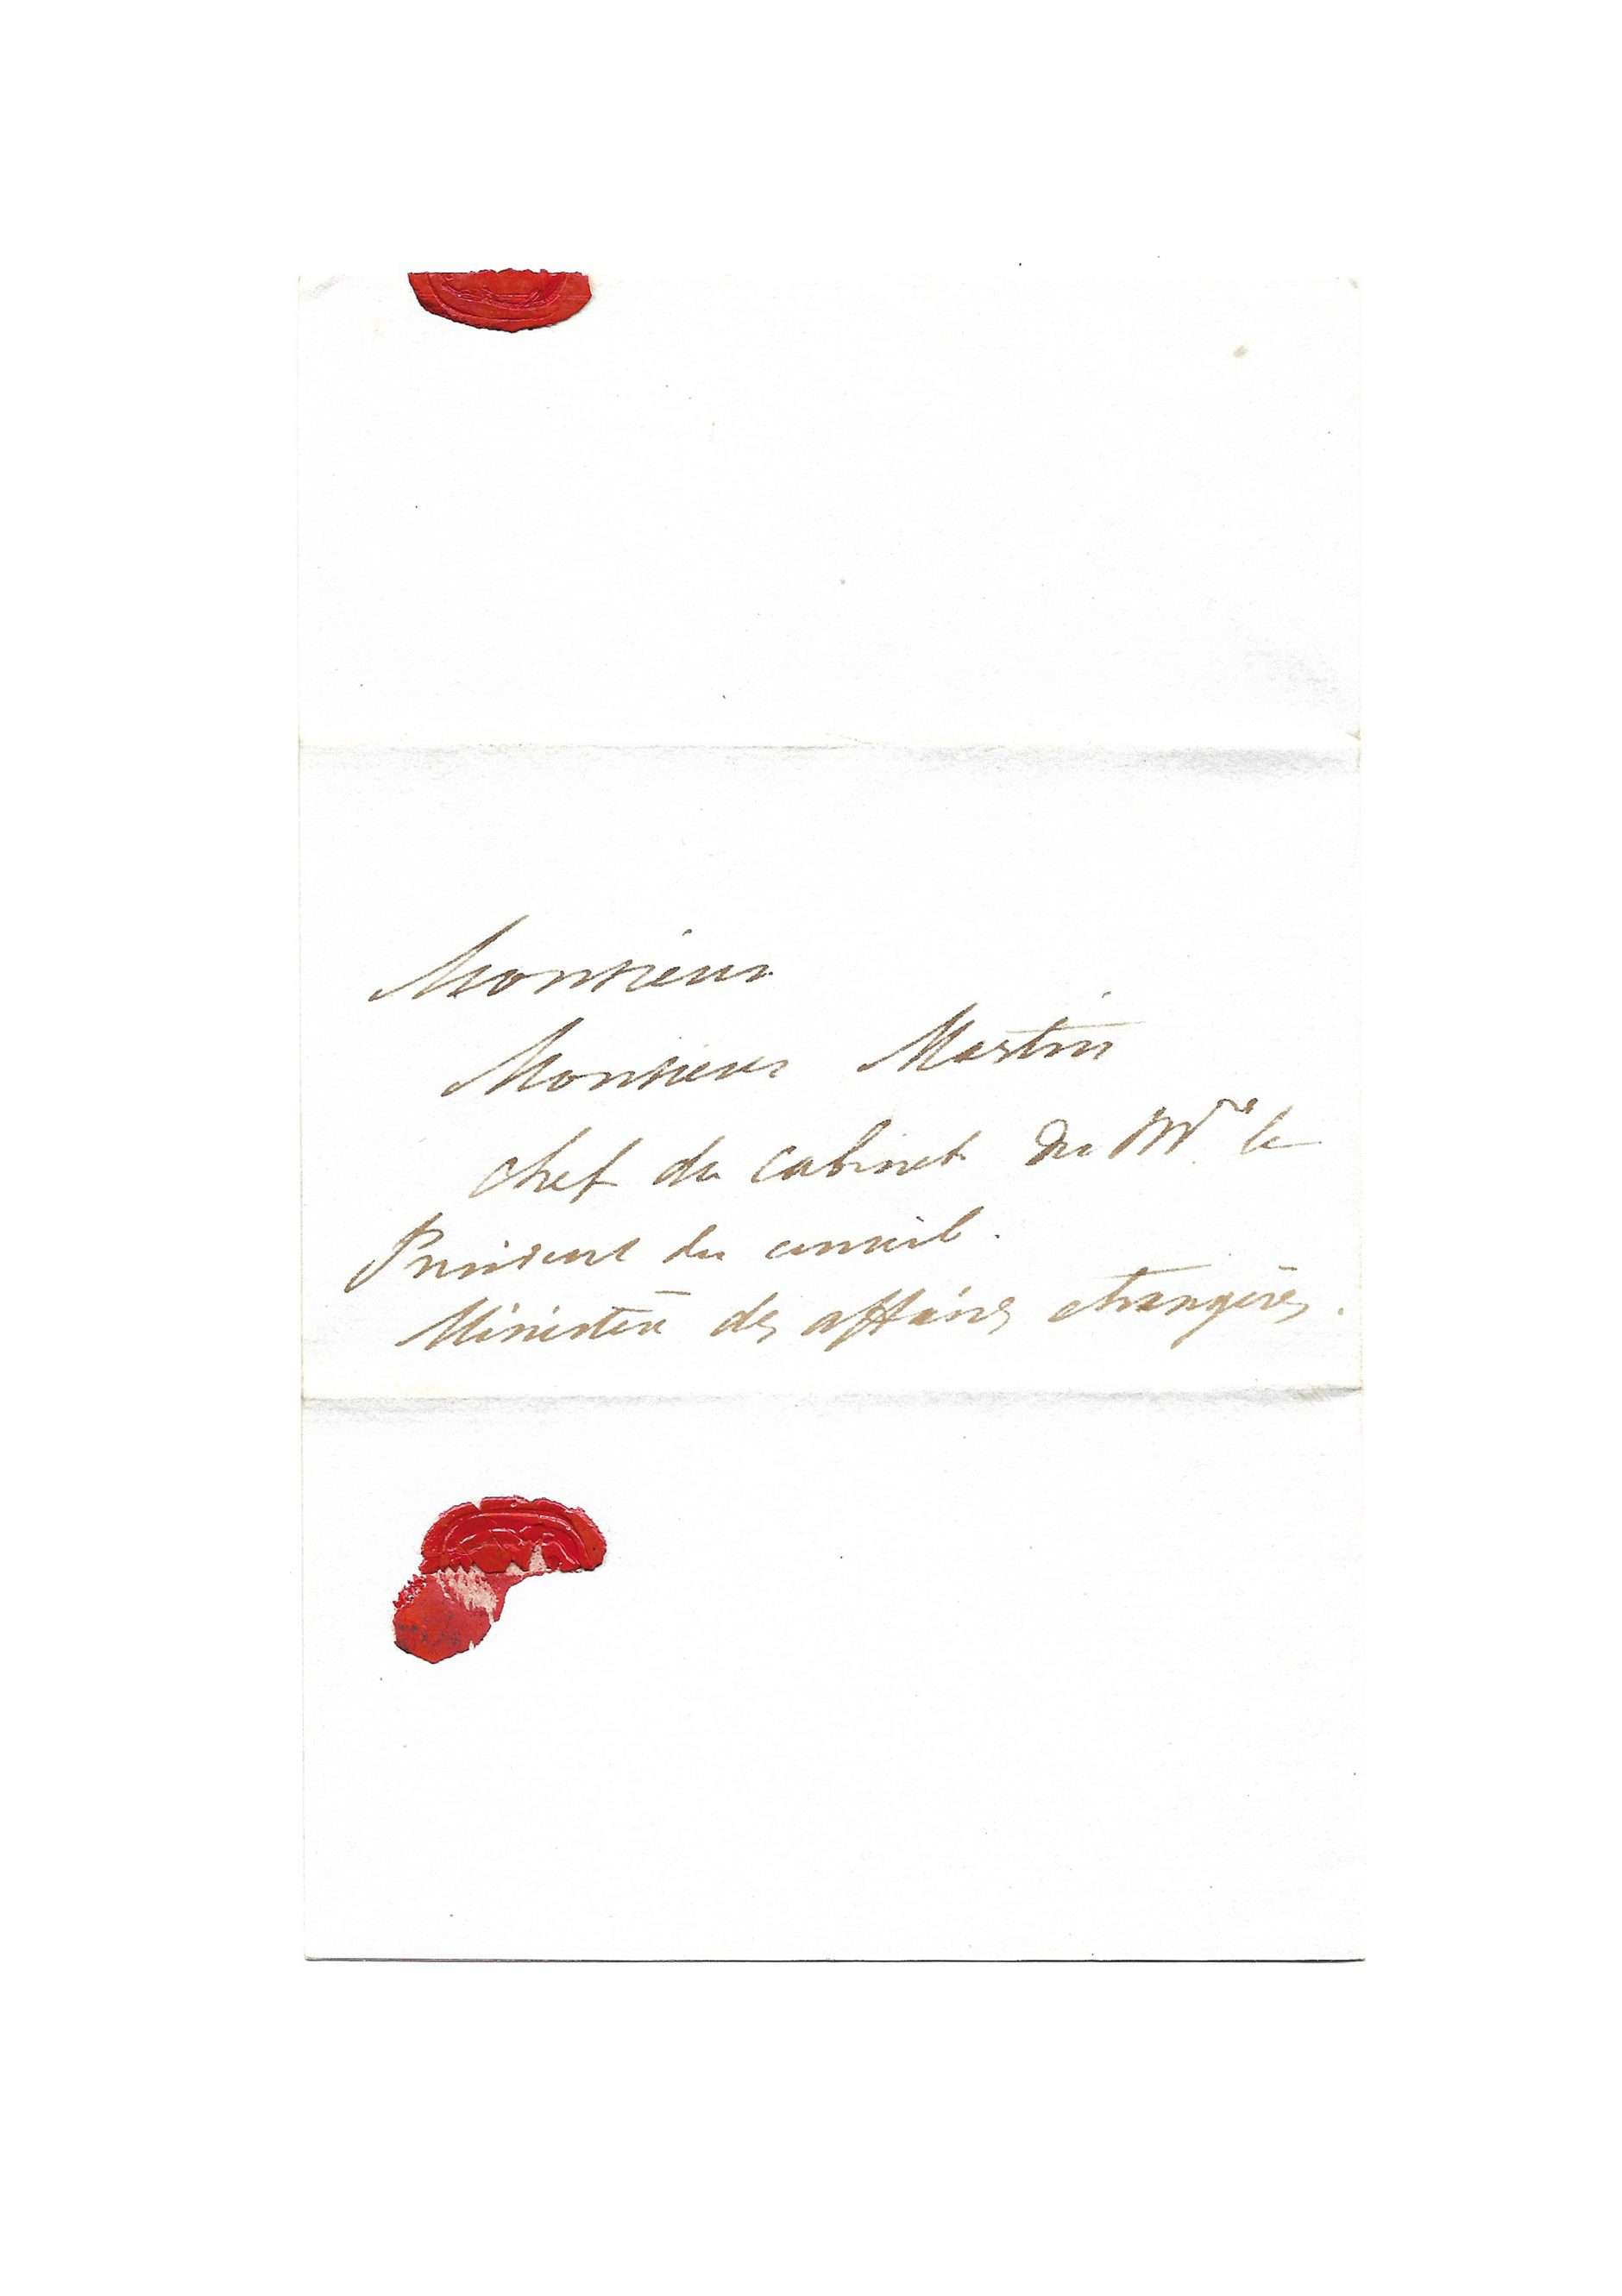 Monsieur
Monsieur Martin
chef du cabinet de Mr. le
President du conseil.
Ministère des affaires etrangères.